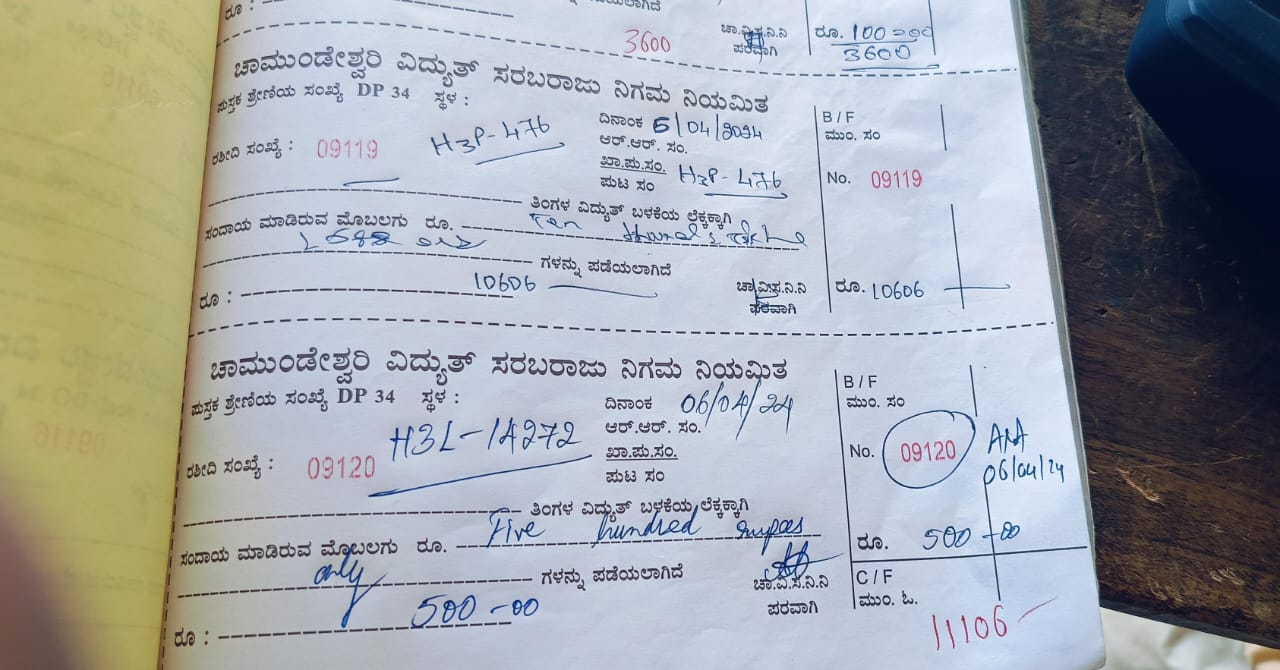 ರೂ :
ಪಡೆಯಲಾಗಿದೆ
3600
ಚಾ.ವಿ.ಸ.ನಿ.ನಿ
ಪರವಾಗಿ
ರೂ. 100=00
3600
ಚಾಮುಂಡೇಶ್ವರಿ ವಿದ್ಯುತ್ ಸರಬರಾಜು ನಿಗಮ ನಿಯಮಿತ
ಪುಸ್ತಕ ಶ್ರೇಣಿಯ ಸಂಖ್ಯೆ DP 34 ಸ್ಥಳ :
ದಿನಾಂಕ 5/04/2024
ಆರ್.ಆರ್. ಸಂ.
ರಶೀದಿ ಸಂಖ್ಯೆ : 09119 H3P-476
ಖಾ.ಪು.ಸಂ.
ಪುಟ ಸಂ H3P-476
B / F
ಮುಂ. ಸಂ
No. 09119
ತಿಂಗಳ ವಿದ್ಯುತ್ ಬಳಕೆಯ ಲೆಕ್ಕಕ್ಕಾಗಿ
ಸಂದಾಯ ಮಾಡಿರುವ ಮೊಬಲಗು ರೂ. Ten
ಗಳನ್ನು ಪಡೆಯಲಾಗಿದೆ
ರೂ : 10606
ಚಾ.ವಿ.ಸ.ನಿ.ನಿ
ಪರವಾಗಿ
ರೂ. 10606
ಚಾಮುಂಡೇಶ್ವರಿ ವಿದ್ಯುತ್ ಸರಬರಾಜು ನಿಗಮ ನಿಯಮಿತ
ಪುಸ್ತಕ ಶ್ರೇಣಿಯ ಸಂಖ್ಯೆ DP 34 ಸ್ಥಳ :
ದಿನಾಂಕ 06/04/24
ಆರ್.ಆರ್. ಸಂ.
ರಶೀದಿ ಸಂಖ್ಯೆ : 09120 H3L-14272
ಖಾ.ಪು.ಸಂ.
ಪುಟ ಸಂ
B / F
ಮುಂ. ಸಂ
No. 09120
06/04/24
ತಿಂಗಳ ವಿದ್ಯುತ್ ಬಳಕೆಯ ಲೆಕ್ಕಕ್ಕಾಗಿ
ಸಂದಾಯ ಮಾಡಿರುವ ಮೊಬಲಗು ರೂ. Five hundred rupees
only ಗಳನ್ನು ಪಡೆಯಲಾಗಿದೆ
ರೂ : 500-00
ಚಾ.ವಿ.ಸ.ನಿ.ನಿ
ಪರವಾಗಿ
ರೂ. 500-00
C / F
ಮುಂ. ಓ.
11106